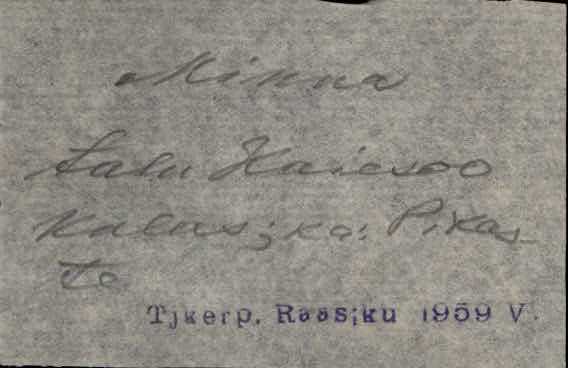 Minna
talu Haiesoo
Kalasjka: Pikas-
te
Tjkerp. Raasiku 1959 V.